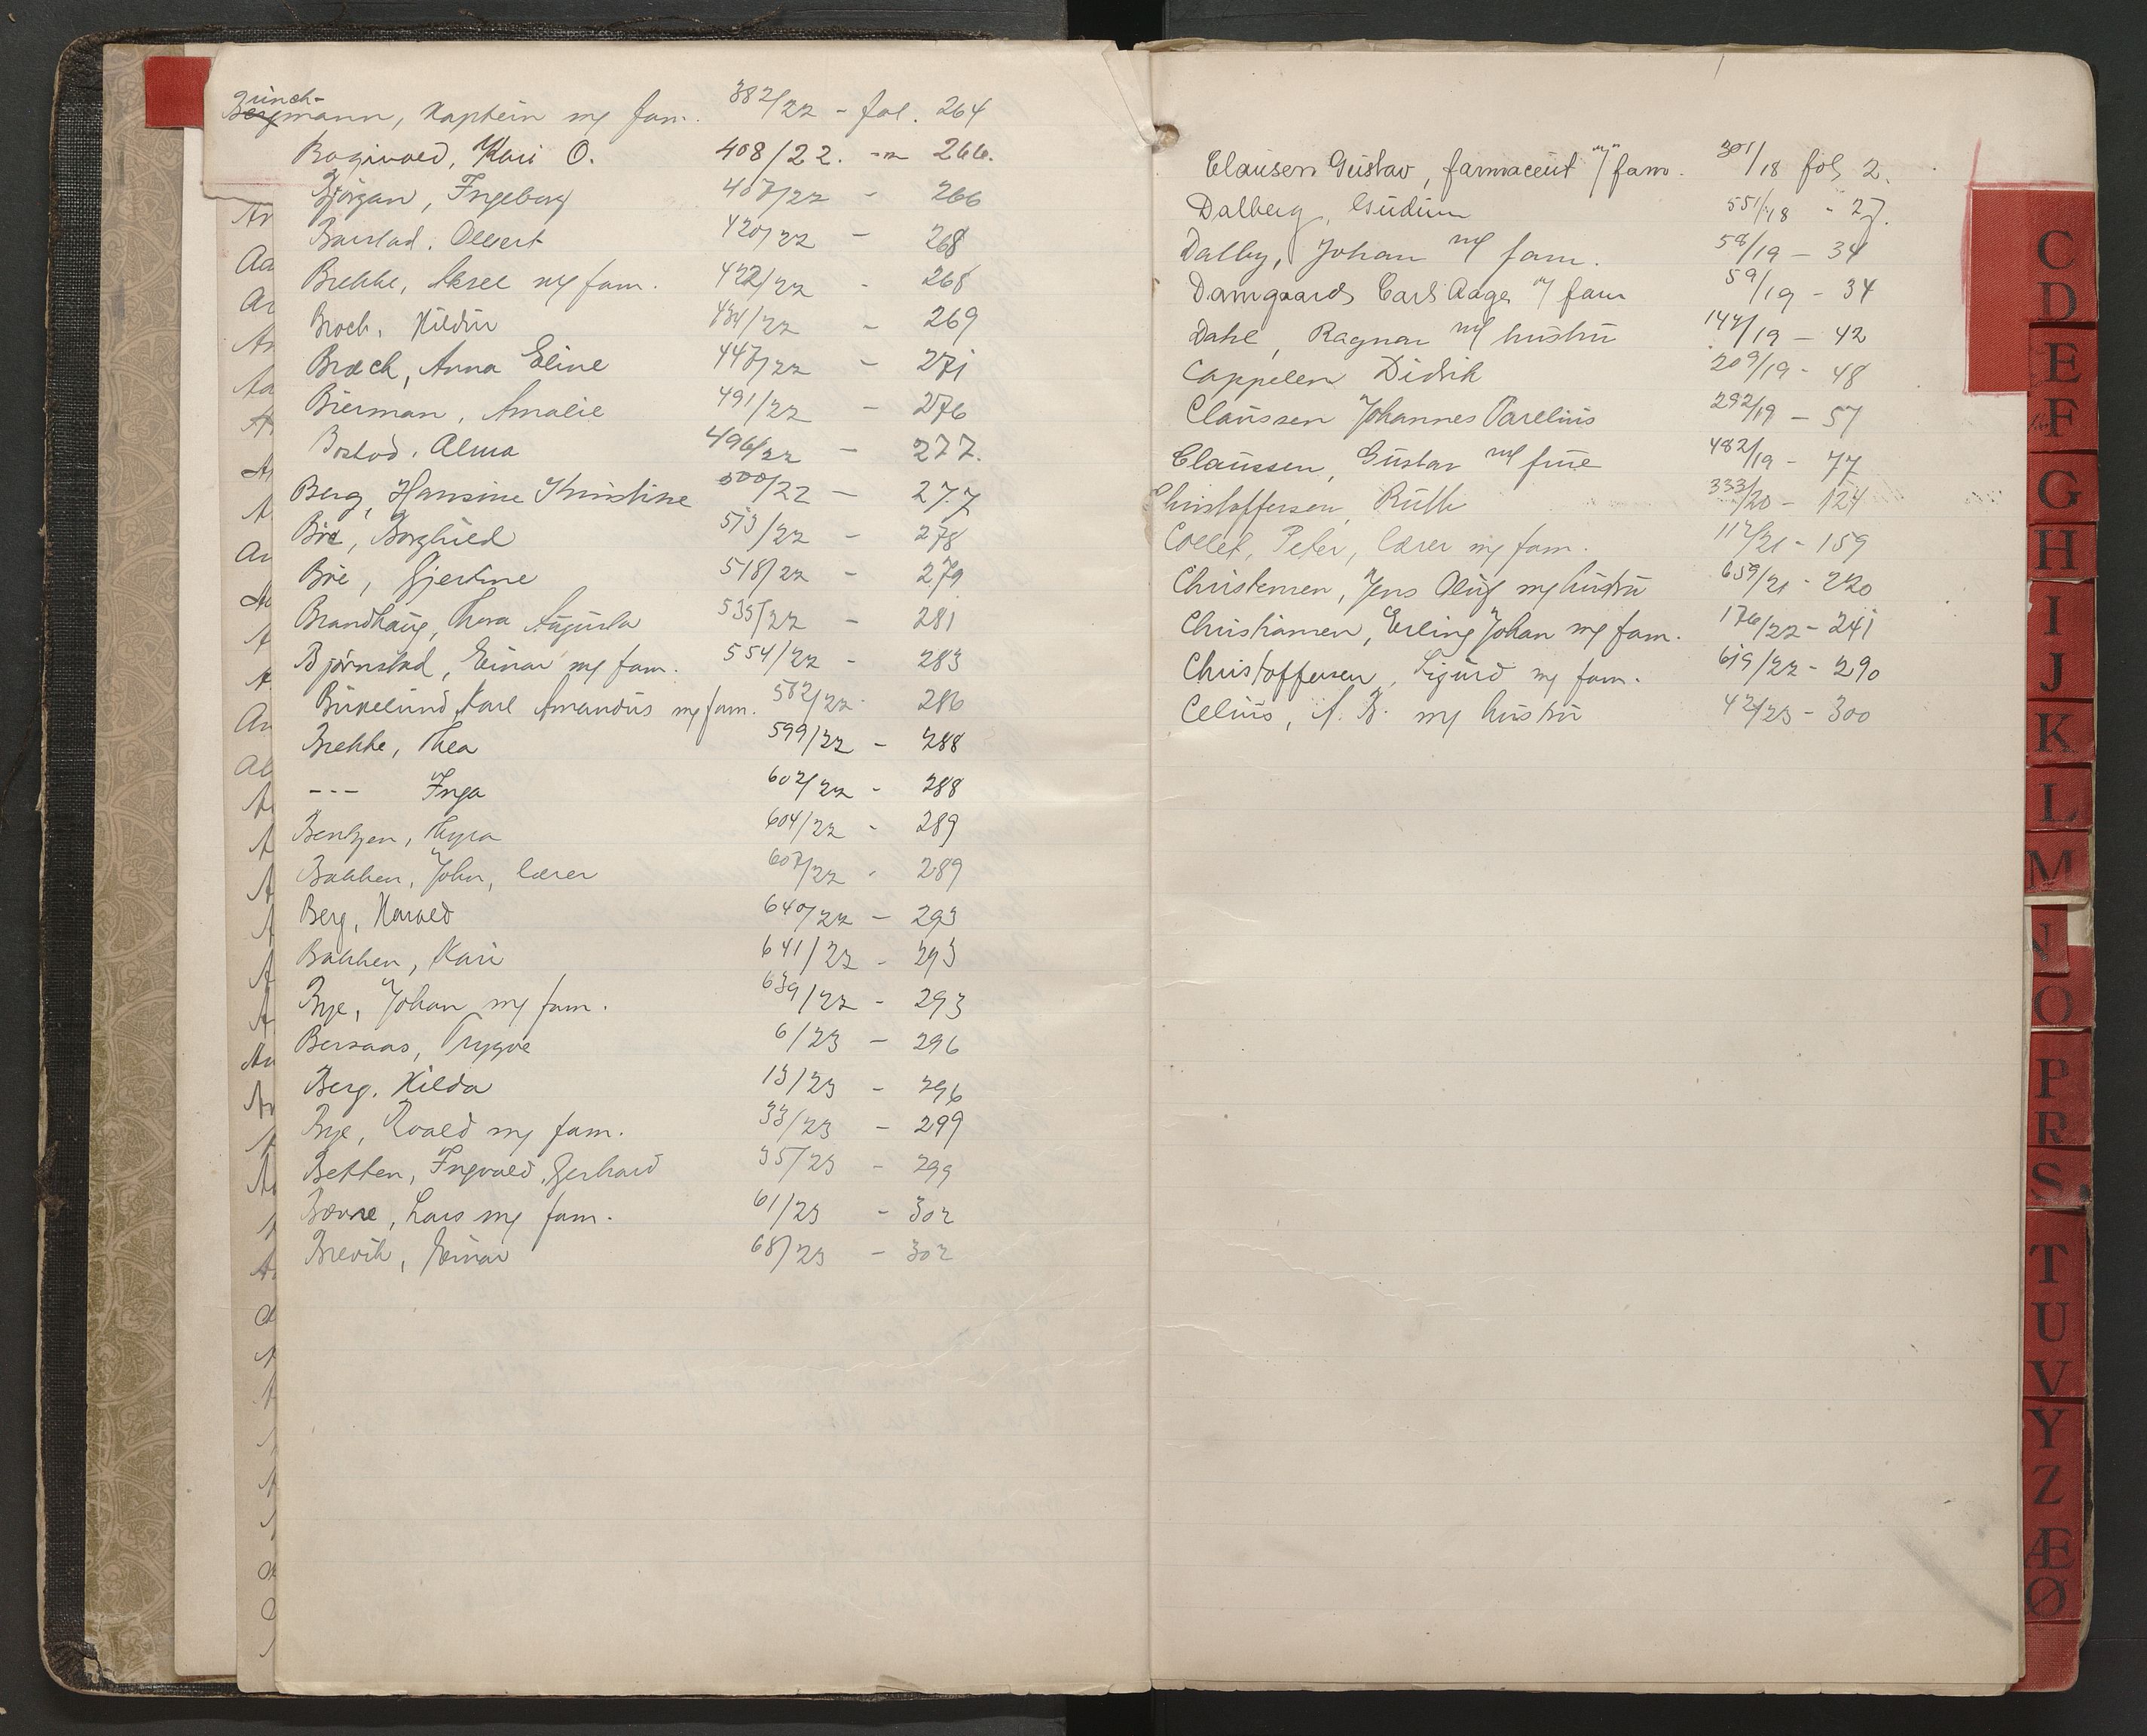 Bünch-
Bergmann, Kaptein m/ fam. 382/22 - fol. 264
408/22. - 266.
Bjørgan, Ingeborg 407/22 - 266
Barstad, Ollert 420/22 - 268
Brekke, Aksel m/ fam. 422/22 - 268
Broch, Hildur 434/22 - 269
Bræck, Anna Eline 447/22 - 271
Bierman, Amalie 491/22 - 276
Bostad, Alma 496/22 - 277.
Berg, Hansine Kristine 500/22 - 277
Bøe, Borghild 513/22 - 278
Bøe, Gjertine 518/22 - 279
Brandhaug, Thora Augusta 535/22 - 281
Bjørnstad, Einar m/ fam. 554/22 - 283
Birkelund, Karl Amandus m/ fam. 582/22 - 286
Brekke, Thea 599/22 - 288
--- Inga 602/22 - 288
Bentzen, Thyra 604/22 - 289
Bakken, John, lærer 607/22 - 289
Berg, Harald 640/22 - 293
Bakken, Kari 641/22 - 293
Bye, Johan m/ fam. 639/22 - 293
Bersaas, Trygve 6/23 - 296
Berg, Hilda 13/23 - 296
Bye, Roald m/ fam. 33/23 - 299
Betten, Ingvald Gerhard 35/23 - 299
Lars m/ fam. 61/23 - 302
Brevik, Einar 68/23 - 302
Clausen Gustav, farmaceut m/ fam. 301/18 fol 2.
Dalberg, Gudrun 551/18 - 27.
Dalby, Johan m/ fam. 58/19 - 34
Damgaard Carl Aage m/ fam 59/19 - 34
Dahl, Ragnar m/ hustru 144/19 - 42
Cappelen Didrik 209/19 - 48
Claussen Johannes Parelius 292/19 - 57
Claussen, Gustav m/ frue 482/19 - 77
Christoffersen, Ruth 333/20 - 124
Collet, Peter, lærer m/ fam. 117/21 - 159
Christensen, Jens Oluf m/ hustru 659/21 - 220
Christiansen, Erling Johan m/ fam. 176/22 - 241
Christoffersen, Sigurd m/ fam. 619/22 - 290
Celius, A. B. m/ hustru 42/23 - 300
C
D
E
F
G
H
I
J
K
L
M
N
O
P
R
S
T
U
V
Y
Z
Æ
Ø